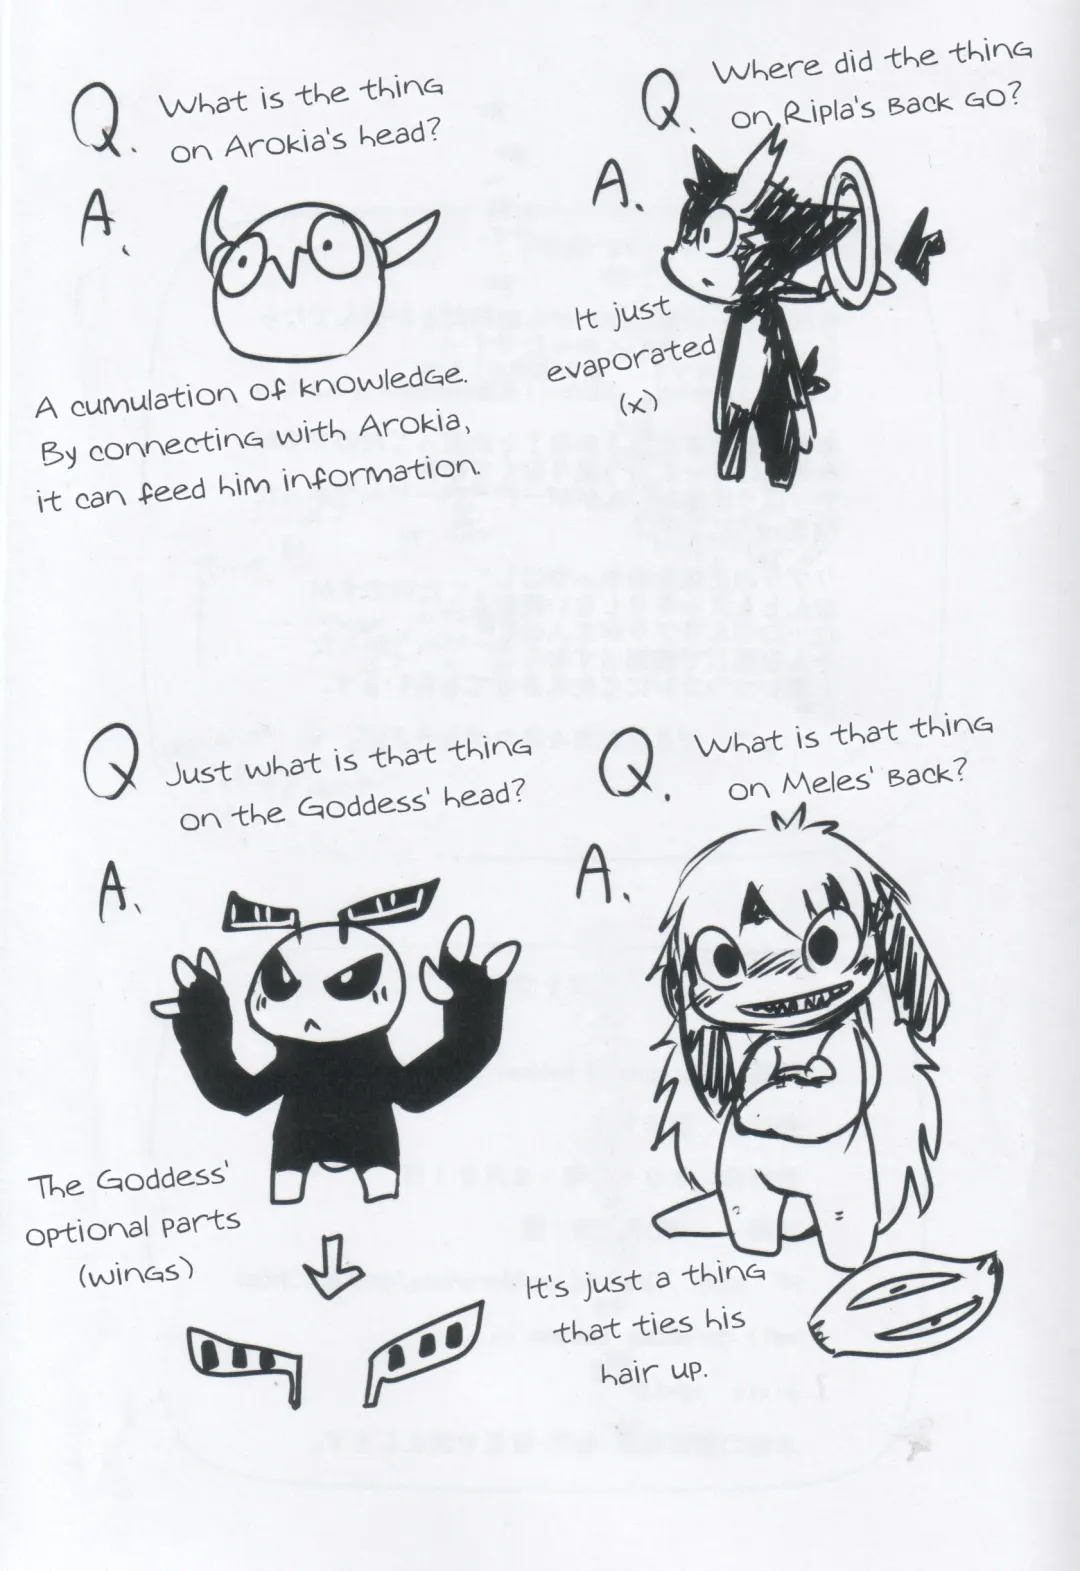 Q. What is the thing
on Arokia's head?
A.
A cumulation of knowledge.
By connecting with Arokia,
it can feed him information.
Q. Where did the thing
on Ripla's Back Go?
A.
It just
evaporated
(x)
Q Just what is that thing
on the Goddess' head?
A.
The Goddess'
optional parts
(wings)
Q. What is that thing
on Meles' Back?
A.
It's just a thing
that ties his
hair up.